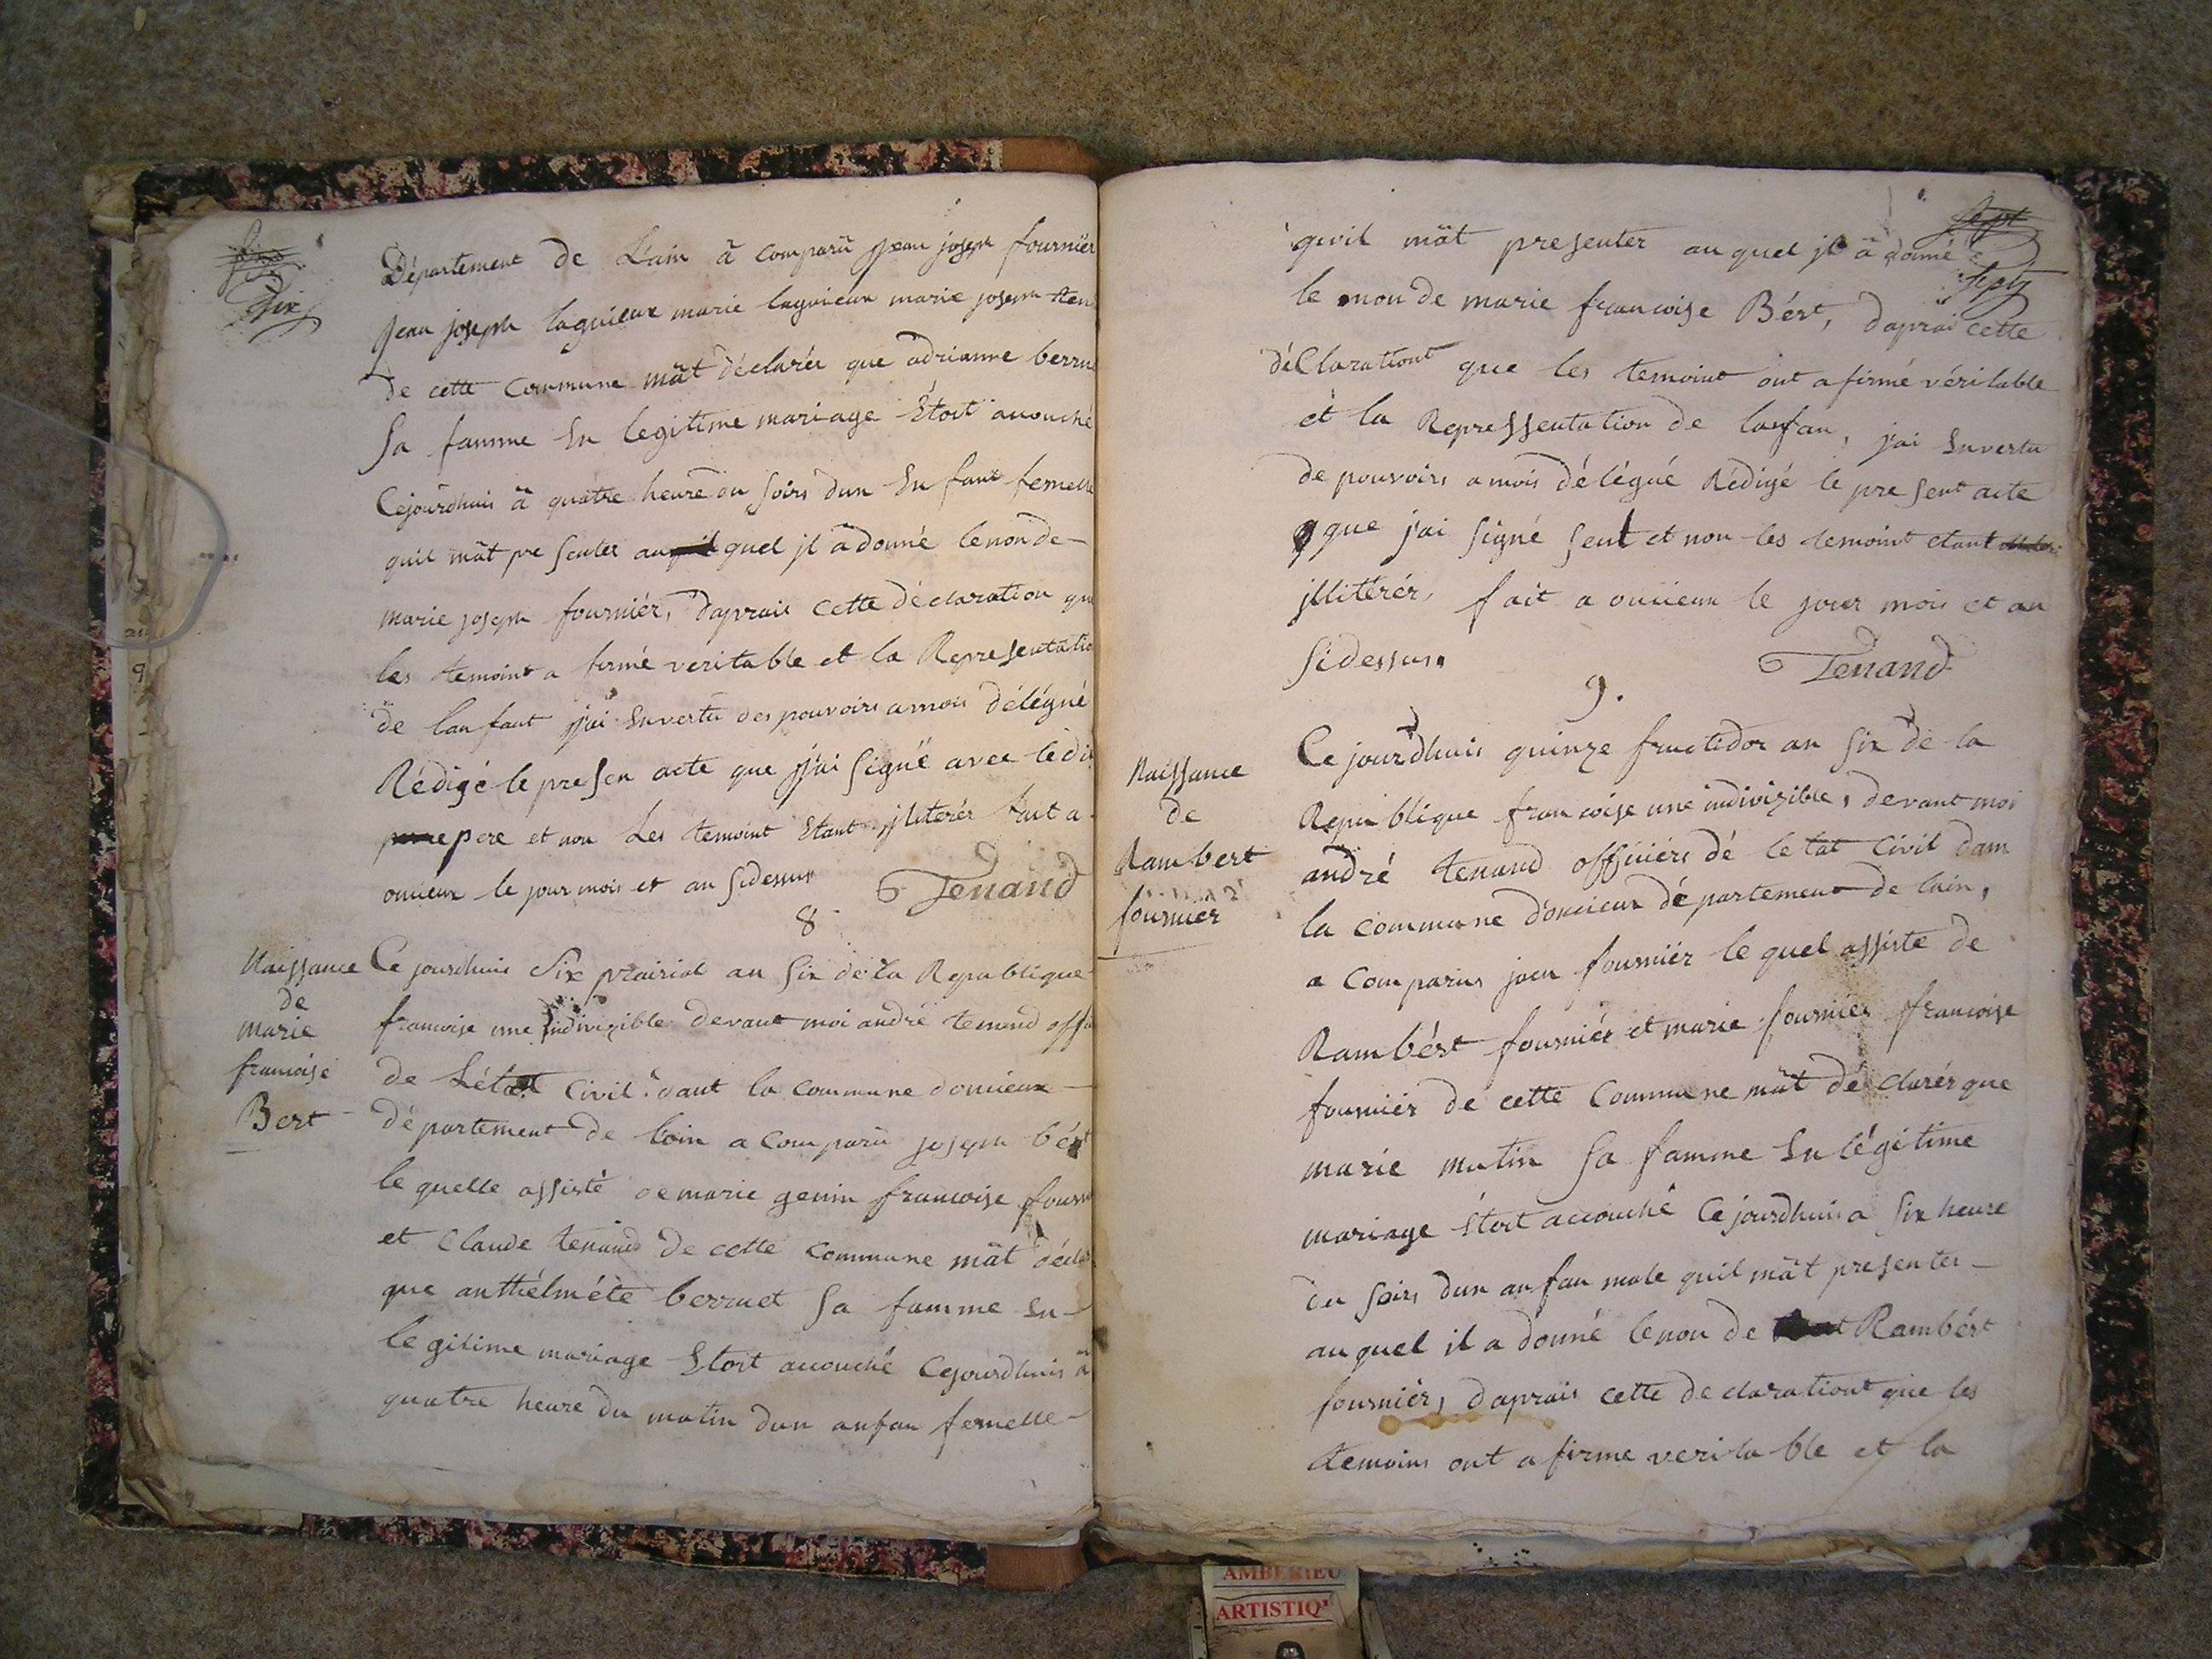 Dix
Département de L'ain à comparû jean joseph fournier
jean joseph lagnieux marie lagnieux marie joseph ten
de cette commune mât déclarér que adrianne berru
sa famme En legitime mariage Etoit acouché
Cejourdhuis â quatre heure du soirs dun En fant femelle
quil mât pre senter au quel jl a donné le non de
marie joseph fourniér, daprais cette déclaration que
les temoint a firmé veritable et la Representatio
de lanfant j'ai Envertu des pouvoirs a mois délégué
Rédigé le presen acte que j'ai signé avec le di
pere et non Les temoint Etant jlliterér fait a
oncieux le jour mois et an sidessus Tenand
8
Naissance
de
marie
francoise
Bert
Ce jourdhuis Six prairial an Six de la Republique
francoise une indivizible devant moi andré tenand offi
de Létat Civil dant la commune doncieux
département de lain a comparû joseph bért
le quelle assisté de marie genin francoise fourn
et Claude tenand de cette commune mât décla
que anthélméte berruet sa famme En
legitime mariage Etoit acouché Cejourdhuis a
quatre heure du matin dun anfan femelle
sept
septz
quil mât presenter au quel jl â domé
le non de marie francoise Bért, daprai cette
déClarationt que les temoint ont afirmé véritable
et la Repressentation de lanfan, j'ai Envertu
de pouvoirs a mois délégué Rédigé le present acte
que j'ai signé seul et non les temoint etant
jllitérér, fait a oncieux le jour mois et an
sidessus. Tenand
9.
Naissance
de
Rambert
fournier
Ce jourdhuis quinze fructidor an Six de la
Republique francoise une indivizible, devant moi
andré tenand officiérs dé le tat Civil dam
la commune doncieux département de lain,
a comparus jean fourniér le quel assiste de
Rambért fourniér et marie fourniér francoise
fourniér de cette Commune mât dé clarér que
marie mutin sa famme En légitime
mariage Etoit acouché Ce jourdhuis a six heure
du soirs dun anfan male quil mât presenter
au quel il a donné le non de Rambért
fourniér, daprais cette declarationt que les
temoins ont afirme verita ble et la
AMBERIEU
ARTISTIQ'